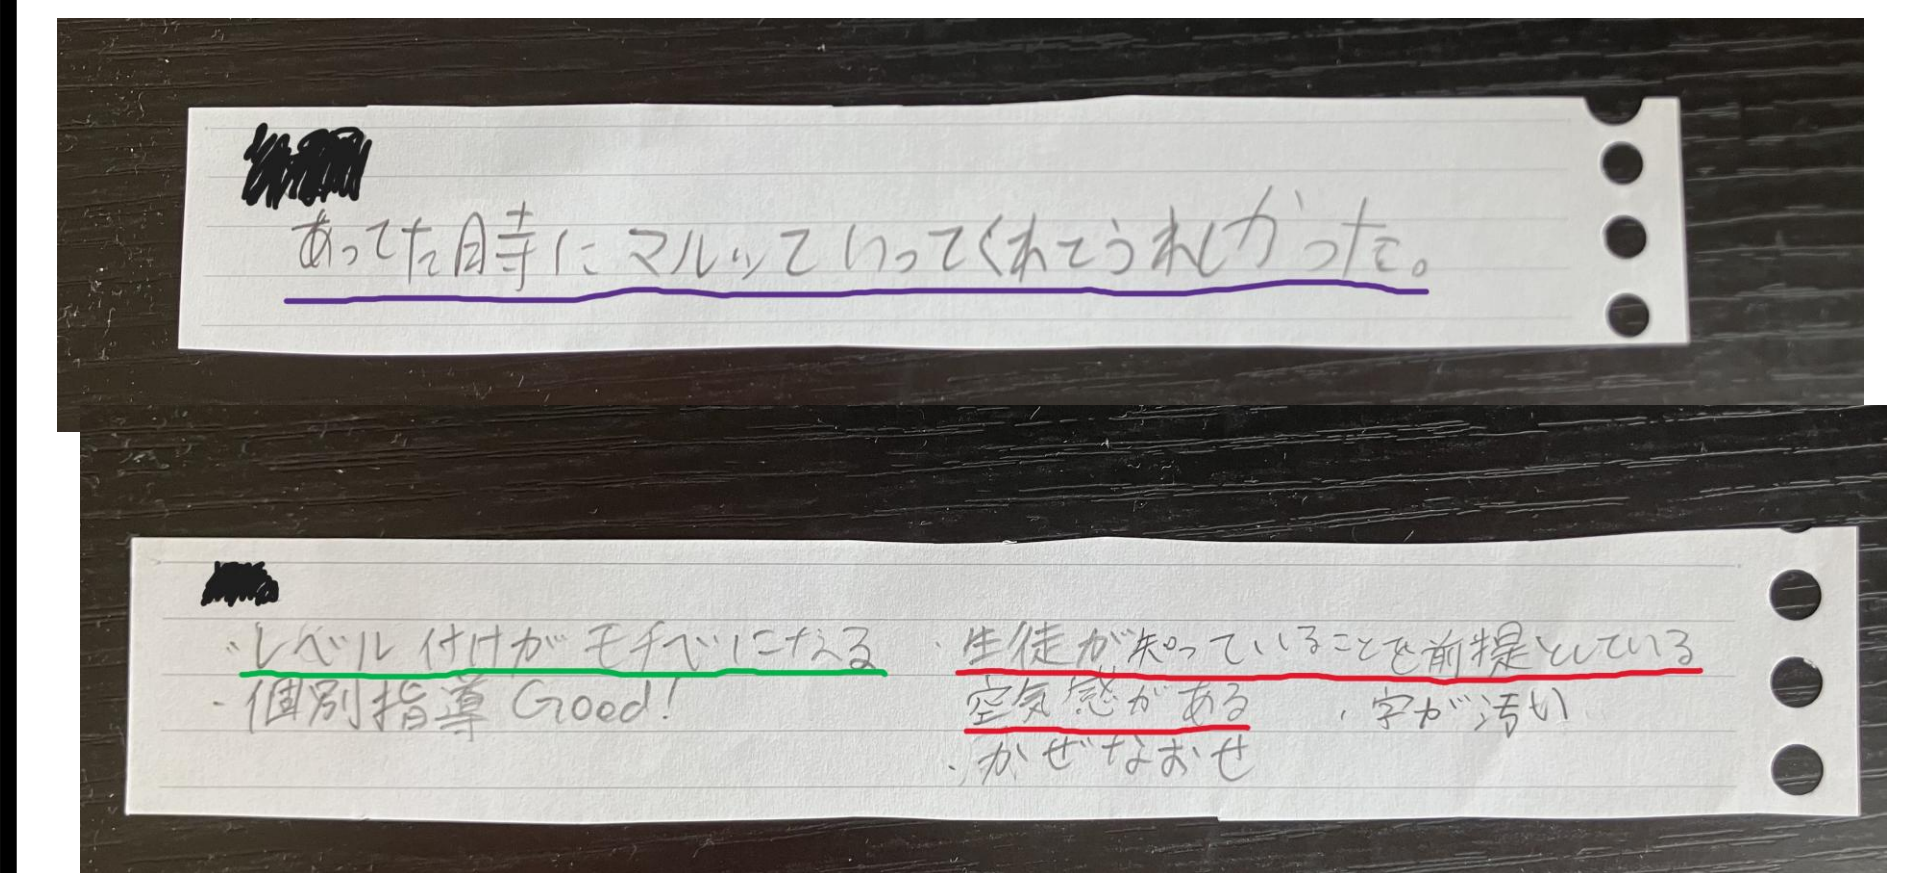 あってた時にマルッていってくれてうれしかった。
・レベル付けがモチベになる
・個別指導 Good!
・生徒が知っていることを前提としている
空気感がある
・字が汚い
・かぜなおせ